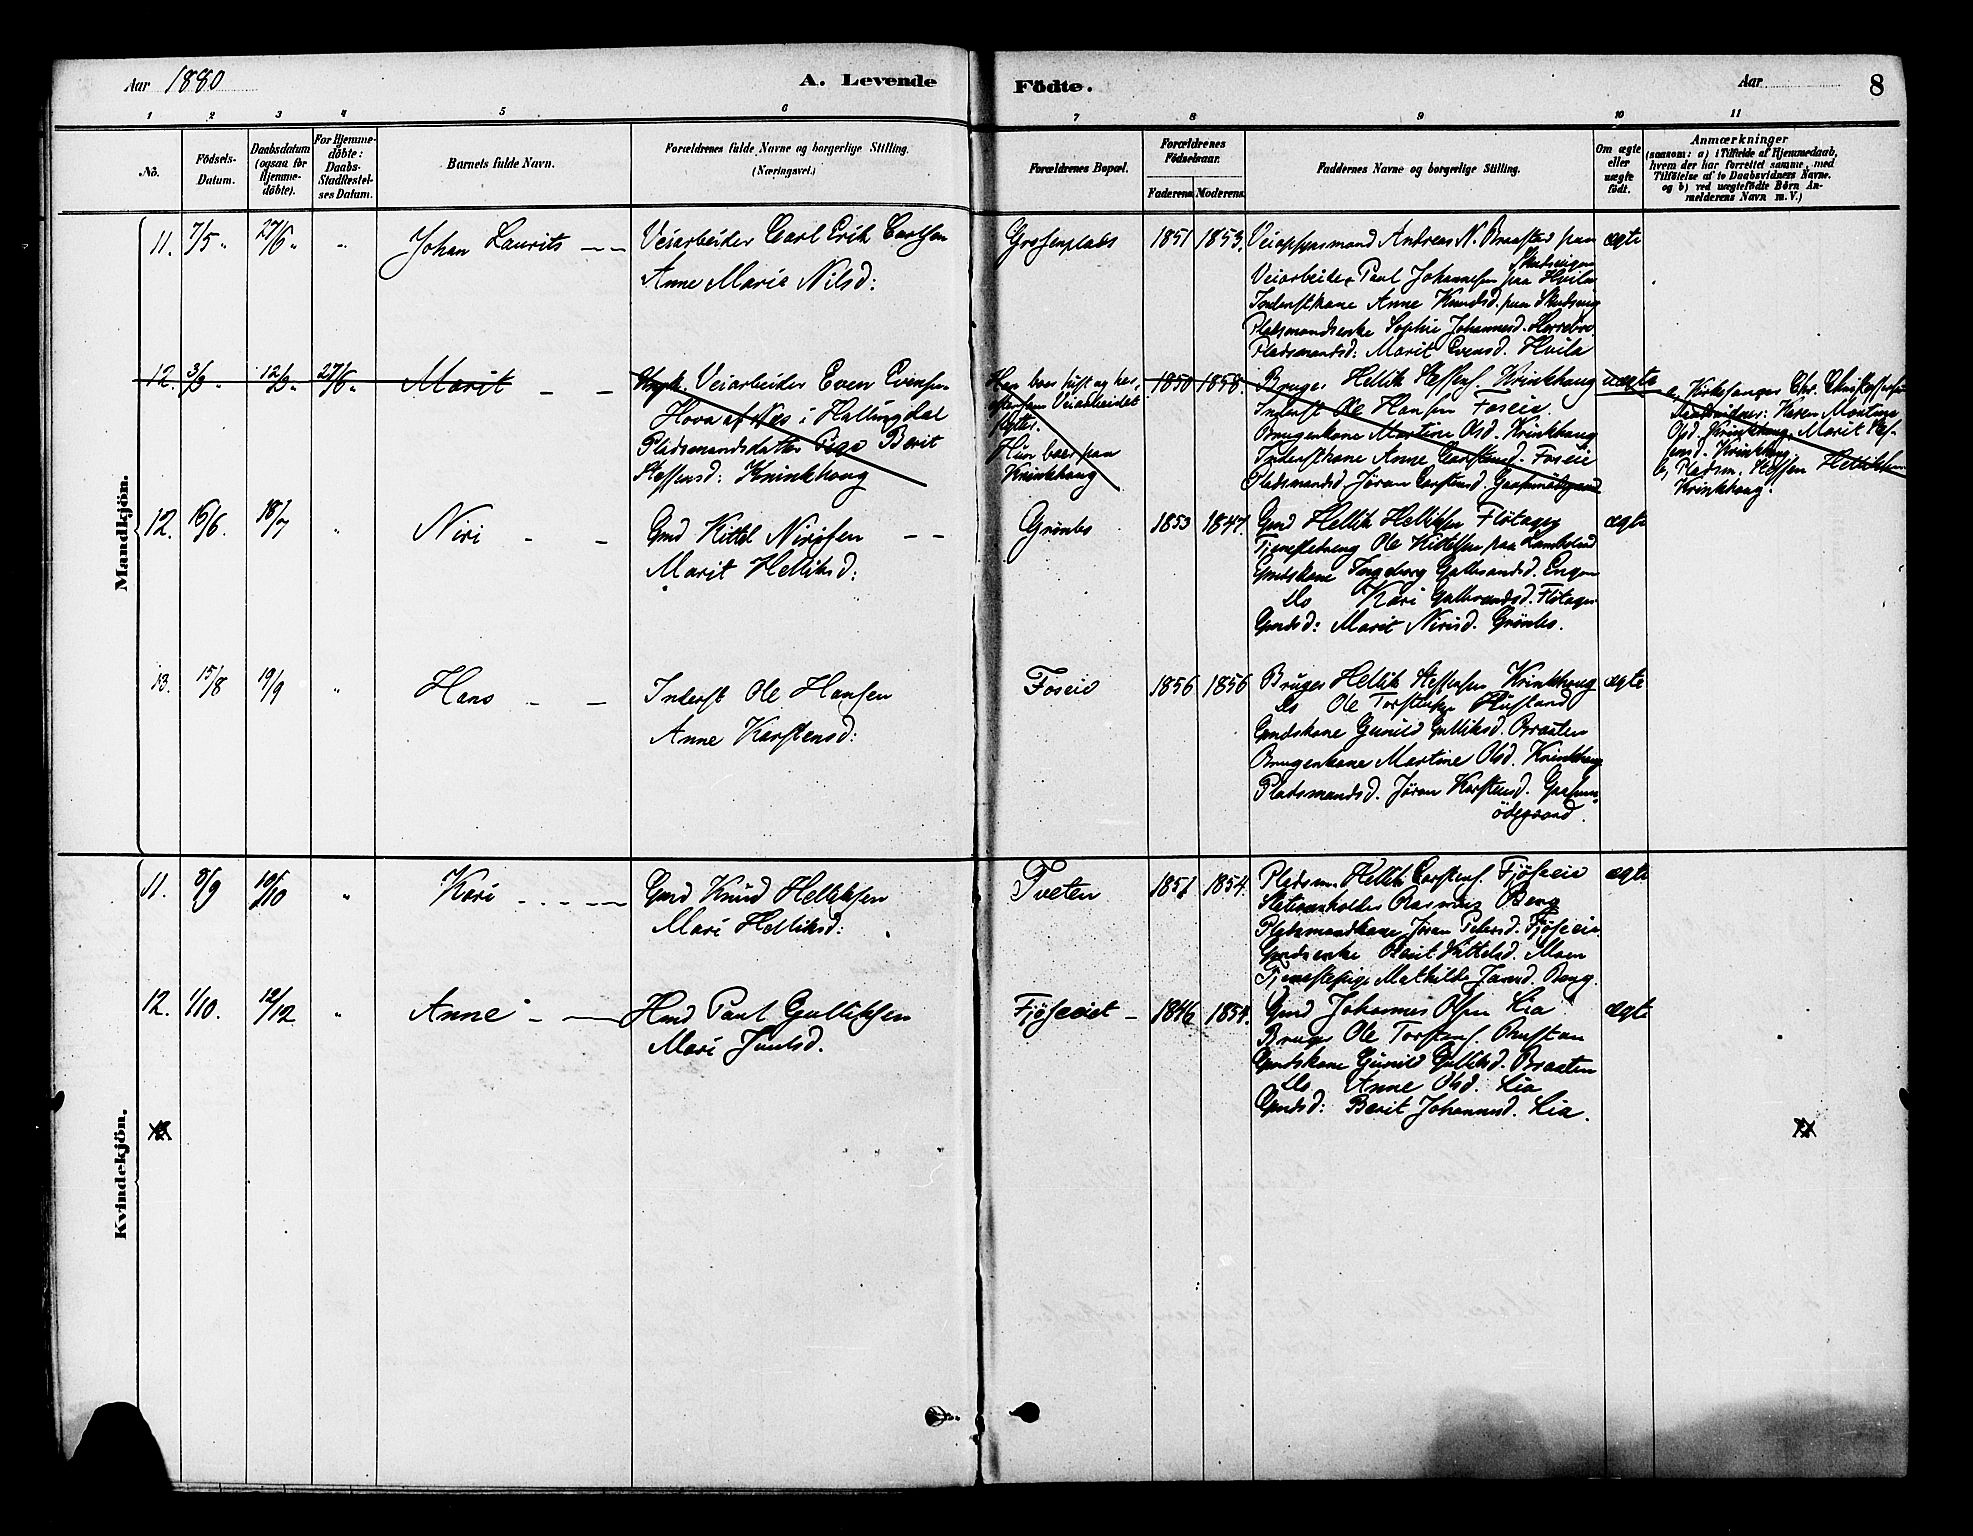 Aar 1880
A. Levende
Födte.
Aar
8
1 2 3 4 5 6 7 8 9 10 11
No.
Födsels-
Datum.
Daabsdatum
(ogsaa for
Hjemme-
döbte).
For Hjemme-
döbte:
Daabs-
Stadfæstel-
ses Datum.
Barnets fulde Navn.
Forældrenes fulde Navne og borgerlige Stilling.
(Næringsvei.)
Forældrenes Bopæl.
Forældrenes
Födselsaar.
Faderens. Moderens.
Faddernes Navne og borgerlige Stilling.
Om ægte
eller
uægte
födt.
Anmærkninger
(saasom: a) i Tilfælde af Hjemmedaab,
hvem der har forrettet samme, med
Tilföielse af to Daabsvidners Navne.
og b) ved uægtefödte Börn An-
melderens Navn m. V.)
Mandkjön.
11. 7/5 " 27/6 " " Johan Laurits
Veiarbeider Carl Erik Carlsen
Anne Maria Nilsd:
Grosenplads
1851 1853.
Veiopps.mand Andreas N. Braasted paa
Veiarbeider Paul Johannesen paa Hvila
Inderstkone Anne Knudsd. paa
Pladsmandsenke Sophie Johannesd. Herrebro
Pladsmandsd: Marit Evensd. Hvila
ægte
12. 27/6 " Marit
Veiarbeider Even Evensen
Hova af Næs i Hallingdal
Pladsmandsdatter Pige Berit
Steffensd: Krinkhaug
Han boer hist og her,
eftersom Veiarbeidet
flytter.
Hun boer paa
Krinkhaug
1850 1858
Bruger Hellik Steffens. Krinkhaug
Inderst Ole Hansen Foseie.
Brugerkone Martine Olsd. Krinkhaug
Inderstkone Anne Carstensd. Foseie
Pladsmandsd. Jøran Carstensd.
uægte
a, Kirkesanger Chr. Christoffersen
Daabsvidner: Karen
Olsd. Krinkhaug, Marit Stef-
fensd. Krinkhaug.
b, Pladsm. Steffen Helliksen
Krinkhaug.
12. 16/6. 18/7 " Niri
Gmd Kittel Nirisen
Marit Helliksd:
Grønbo
1853 1847.
Gmd Hellik Helliksen Fløtager
Tjenestedreng Ole Kittelsen paa
Gmdskone Ingeborg Gulbrandsd. Engen
Do Kari Gulbrandsd. Fløtager
Gmdsd: Marit Nirisd. Grönbo.
ægte
13. 15/8 19/9 " Hans
Inderst Ole Hansen
Anne Karstensd:
Foseie
1856 1856
Bruger Hellik Steffensen Krinkhaug
Do Ole Torstensen
Gmdskone Gunild Gulliksd. Braaten
Brugerkone Martine Olsd. Krinkhaug
Pladsmandsd. Jøran Karstensd.
ödegaard.
ægte
Kvindekjön.
11. 8/9 10/10 " Kari
Gmd Knud Helliksen
Mari Helliksd:
Tveten
1851 1854.
Pladsm. Hellik Carstens. Fjöseie
Rasmus Berg
Pladsmandkone Jøran Petersd. Fjöseie
Gmdsenke Berit Kittelsd. Moen
Tjenestepige Mathilde Jansd. Berg.
ægte
12. 1/10. 12/12. " Anne
Hmd Paul Gulliksen
Mari Juulsd.
Fjöseiet
1846 1854.
Gmd Johannes Olsen Lia
Bruger Ole Torstens.
Gmdskone Gunild Gulliksd. Braaten
Do Anne Olsd. Lia
Gmdsd: Berit Johannesd. Lia.
ægte